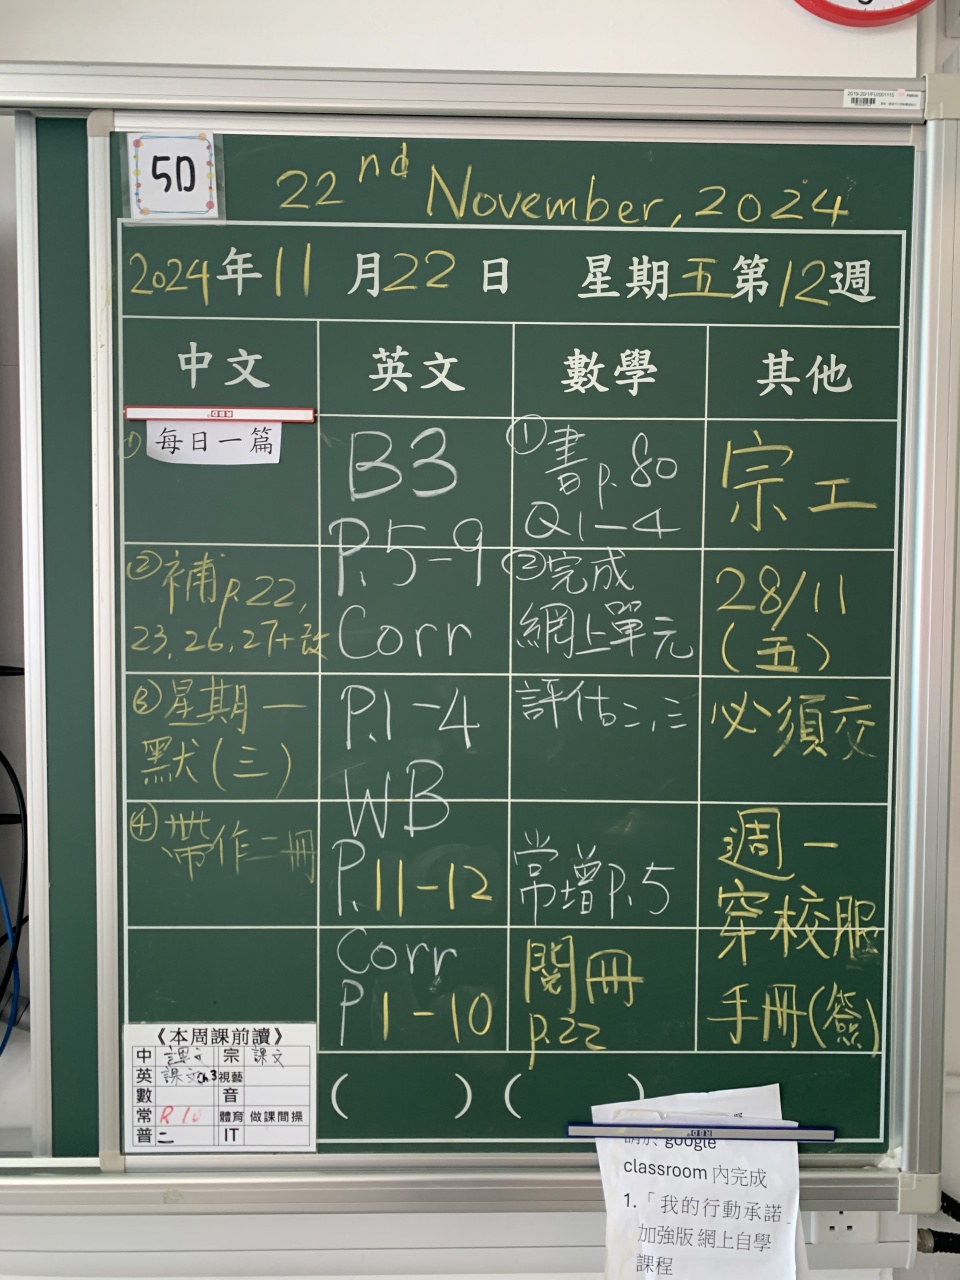 5D
22nd November, 2024
2024年11月22日 星期五第12週
中文
英文
數學
其他
① 每日一篇
② 補p.22,
23,26,27+改
③ 星期一
默(三)
④ 帶作二冊
B3
P.5-9
Corr
P.1-4
WB
P.11-12
Corr
P1-10
① 書p.80
Q1-4
② 完成
網上單元
評估二,三
常增P.5
閱冊
p.22
宗工
28/11
(五)
必須交
週一
穿校服
手冊(簽)
《本周課前讀》
中 課文 宗 課文
英 課文ch.3 視藝
數 音
常 R10 體育 做課間操
普 二 IT
( ) ( )
請於 google
classroom 內完成
1.「我的行動承諾
加強版網上自學
課程